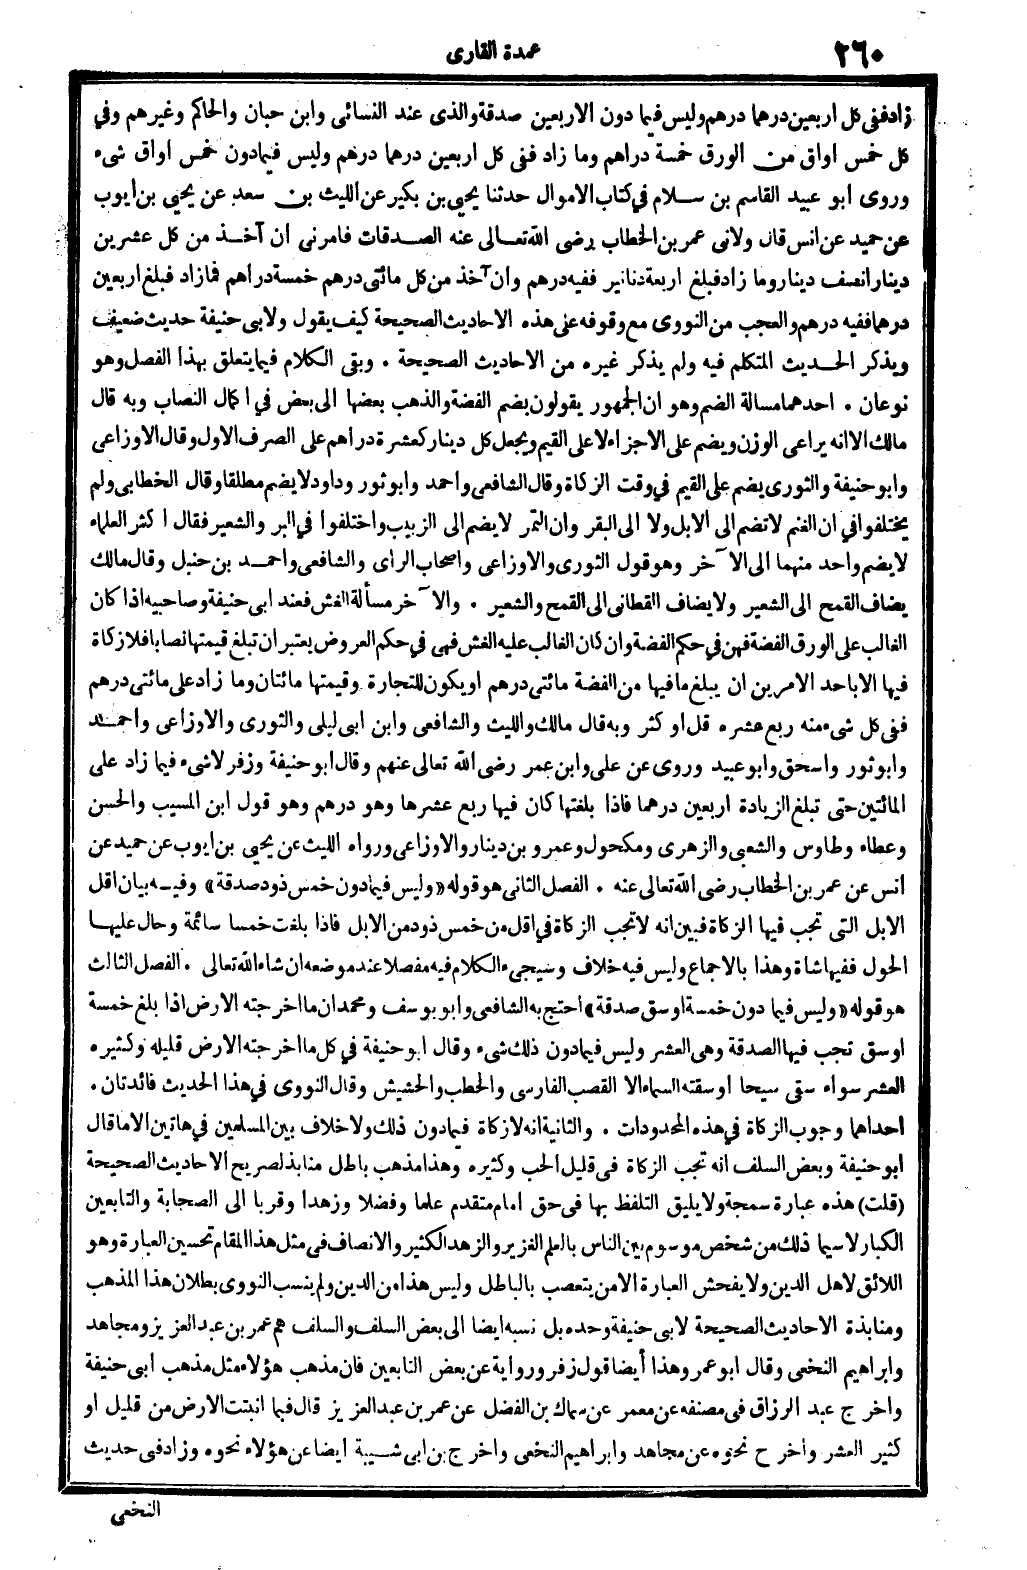 ٢٦٠
عمدة القارى
زاد ففى كل اربعين درهما درهم وليس فيما دون الاربعين صدقة والذى عند النسائى وابن حبان والحاكم وغيرهم وفي
كل خمس اواق من الورق خمسة دراهم وما زاد ففى كل اربعين درهما درهم وليس فيمادون خمس اواق شىء
وروى ابو عبيد القاسم بن سلام في كتاب الاموال حدثنا يحيى بن بكير عن الليث بن سعد عن يحيى بن ايوب
عن حميد عن انس قال ولانى عمر بن الخطاب رضى الله تعالى عنه الصدقات فامرنى ان آخذ من كل عشرين
دينارا نصف دينار وما زاد فبلغ اربعة دنانير ففيه درهم وان آخذ من كل مائتى درهم خمسة دراهم فمازاد فبلغ اربعين
درهما ففيه درهم والعجب من النووى مع وقوفه على هذه الاحاديث الصحيحة كيف يقول ولابى حنيفة حديث ضعيف
ويذكر الحديث المتكلم فيه ولم يذكر غيره من الاحاديث الصحيحة . وبقى الكلام فيما يتعلق بهذا الفصل وهو
نوعان . احدهما مسالة الضم وهو ان الجمهور يقولون بضم الفضة والذهب بعضها الى بعض في اكمال النصاب وبه قال
مالك الا انه يراعى الوزن ويضم على الاجزاء لا على القيم ويجعل كل دينار كعشرة دراهم على الصرف الاول وقال الاوزاعى
وابو حنيفة والثورى يضم على القيم في وقت الزكاة وقال الشافعى واحمد وابو ثور وداود لا يضم مطلقا وقال الخطابى ولم
يختلفوا في ان الغنم لا تضم الى الابل ولا الى البقر وان التمر لا يضم الى الزبيب واختلفوا في البر والشعير فقال اكثر العلماء
لا يضم واحد منهما الى الآخر وهو قول الثورى والاوزاعى واصحاب الراى والشافعى واحمد بن حنبل وقال مالك
يضاف القمح الى الشعير ولا يضاف القطانى الى القمح والشعير . والآخر مسألة الغش فعند ابى حنيفة وصاحبيه اذا كان
الغالب على الورق الفضة فهن في حكم الفضة وان كان الغالب عليه الغش فهى في حكم العروض يعتبر ان تبلغ قيمتها نصابا فلا زكاة
فيها الا باحد الامرين ان يبلغ ما فيها من الفضة مائتى درهم او يكون للتجارة وقيمتها مائتان وما زاد على مائتى درهم
ففى كل شىء منه ربع عشره قل او كثر وبه قال مالك والليث والشافعى وابن ابى ليلى والثورى والاوزاعى واحمد
وابو ثور واسحق وابو عبيد وروى عن على وابن عمر رضى الله تعالى عنهم وقال ابو حنيفة وزفر لاشىء فيما زاد على
المائتين حتى تبلغ الزيادة اربعين درهما فاذا بلغتها كان فيها ربع عشرها وهو درهم وهو قول ابن المسيب والحسن
وعطاء وطاوس والشعبى والزهرى ومكحول وعمرو بن دينار والاوزاعى ورواه الليث عن يحيى بن ايوب عن حميد عن
انس عن عمر بن الخطاب رضى الله تعالى عنه . الفصل الثانى هو قوله «وليس فيمادون خمس ذود صدقة» وفيه بيان اقل
الابل التى تجب فيها الزكاة فبين انه لا تجب الزكاة في اقل من خمس ذود من الابل فاذا بلغت خمسا سائمة وحال عليها
الحول ففيها شاة وهذا بالاجماع وليس فيه خلاف وسيجىء الكلام فيه مفصلا عند موضعه ان شاء الله تعالى . الفصل الثالث
هو قوله «وليس فيما دون خمسة اوسق صدقة» احتج به الشافعى وابو يوسف ومحمد ان ما اخرجته الارض اذا بلغ خمسة
اوسق تجب فيها الصدقة وهى العشر وليس فيمادون ذلك شىء وقال ابو حنيفة في كل ما اخرجته الارض قليله وكثيره
العشر سواء سقى سيحا او سقته السماء الا القصب الفارسى والحطب والحشيش وقال النووى في هذا الحديث فائدتان .
احداهما وجوب الزكاة في هذه المحدودات . والثانية انه لا زكاة فيمادون ذلك ولا خلاف بين المسلمين في هاتين الا ما قال
ابو حنيفة وبعض السلف انه تجب الزكاة فى قليل الحب وكثيره وهذا مذهب باطل منابذ لصريح الاحاديث الصحيحة
(قلت) هذه عبارة سمجة ولا يليق التلفظ بها فى حق امام متقدم علما وفضلا وزهدا وقربا الى الصحابة والتابعين
الكبار لا سيما ذلك من شخص موسوم بين الناس بالعلم الغزير والزهد الكثير والانصاف فى مثل هذا المقام تحسين العبارة وهو
اللائق لاهل الدين ولا يفحش العبارة الا من يتعصب بالباطل وليس هذا من الدين ولم ينسب النووى بطلان هذا المذهب
ومنابذة الاحاديث الصحيحة لابى حنيفة وحده بل نسبه ايضا الى بعض السلف والسلف هم عمر بن عبد العزيز ومجاهد
وابراهيم النخعى وقال ابو عمر وهذا أيضا قول زفر ورواية عن بعض التابعين فان مذهب هؤلاء مثل مذهب ابى حنيفة
واخرج عبد الرزاق فى مصنفه عن معمر عن سماك بن الفضل عن عمر بن عبد العزيز قال فيما انبتت الارض من قليل او
كثير العشر واخرج نحوه عن مجاهد وابراهيم النخعى واخرج بن ابى شيبة ايضا عن هؤلاء نحوه وزاد فى حديث
النخعى